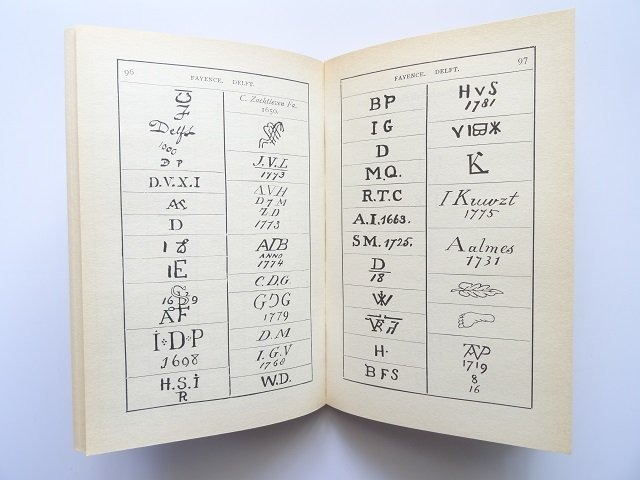 96
FAYENCE. DELFT.
Delft
D P
D.V.X.I
AK
D
I 8
IE
1699
AF
I·D·P
1698
H.S.I
R
C. Zachtleven Fa.
1650.
J.V.L
1773
A.V.H
D 7 M
Z.D
1773
AIB
ANNO
1774
C.D.G.
G
G
1779
D.M
I.G.V
1768
W.D.
FAYENCE. DELFT.
97
BP
IG
D
M.Q.
R.T.C
A.I.1663.
SM. 1725.
D
18
H·
BFS
HVS
1781
K
I Kuwzt
1775
Aalmes
1731
AP
1719
8
16